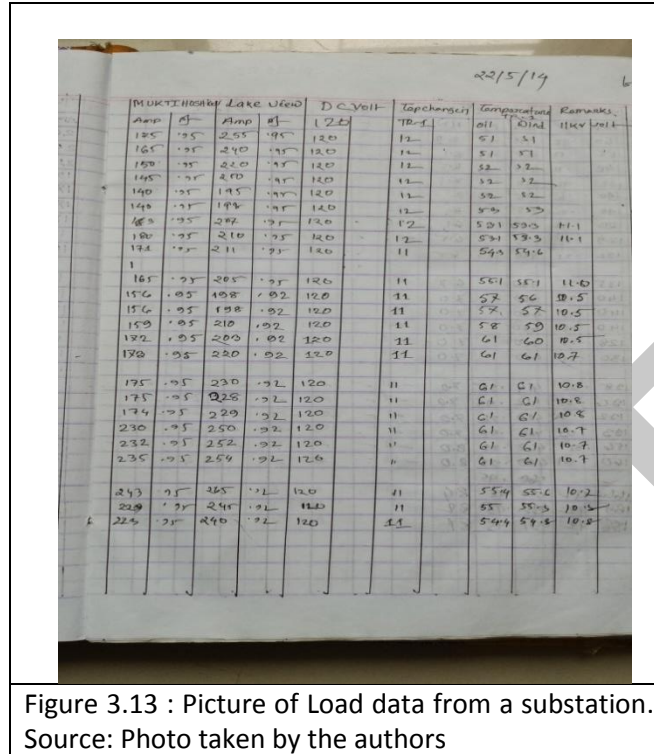 22/5/14
Lake View DC Volt Tapchanger Temperature Remarks
Amp Pf Amp Pf 120 TR-1 oil Wind 11kv volt
185 .95 255 .95 120 12 51 51
165 .95 240 .95 120 12 51 51
150 .95 220 .95 120 12 52 52
145 .95 210 .95 120 12 52 52
140 .95 195 .95 120 12 52 52
140 .95 120 12 53 53
.95 .95 120 12 11.1
180 .95 210 .95 120 12 59.3 11.1
171 .95 211 .95 120 11 54.6
1
165 .95 205 .95 120 11 55.1 11.0
156 .95 198 .92 120 11 57 56 10.5
156 .95 198 .92 120 11 57 57 10.5
159 .95 210 .92 120 11 58 59 10.5
.95 203 .92 120 11 61 60 10.5
.95 220 .92 120 11 61 61 10.7
175 .95 230 .92 120 11 61 61 10.8
175 .95 228 .92 120 11 61 61 10.8
174 .95 229 .92 120 11 61 61 10.8
230 .95 250 .92 120 11 61 61 10.7
232 .95 252 .92 120 11 61 61 10.7
235 .95 254 .92 120 " 61 61 10.7
243 .95 265 .92 120 11 55.4 55.6 10.2
229 .95 245 .92 120 11 55 55.3
223 .95 240 .92 120 11 54.4 54.8 10.8
Figure 3.13 : Picture of Load data from a substation.
Source: Photo taken by the authors